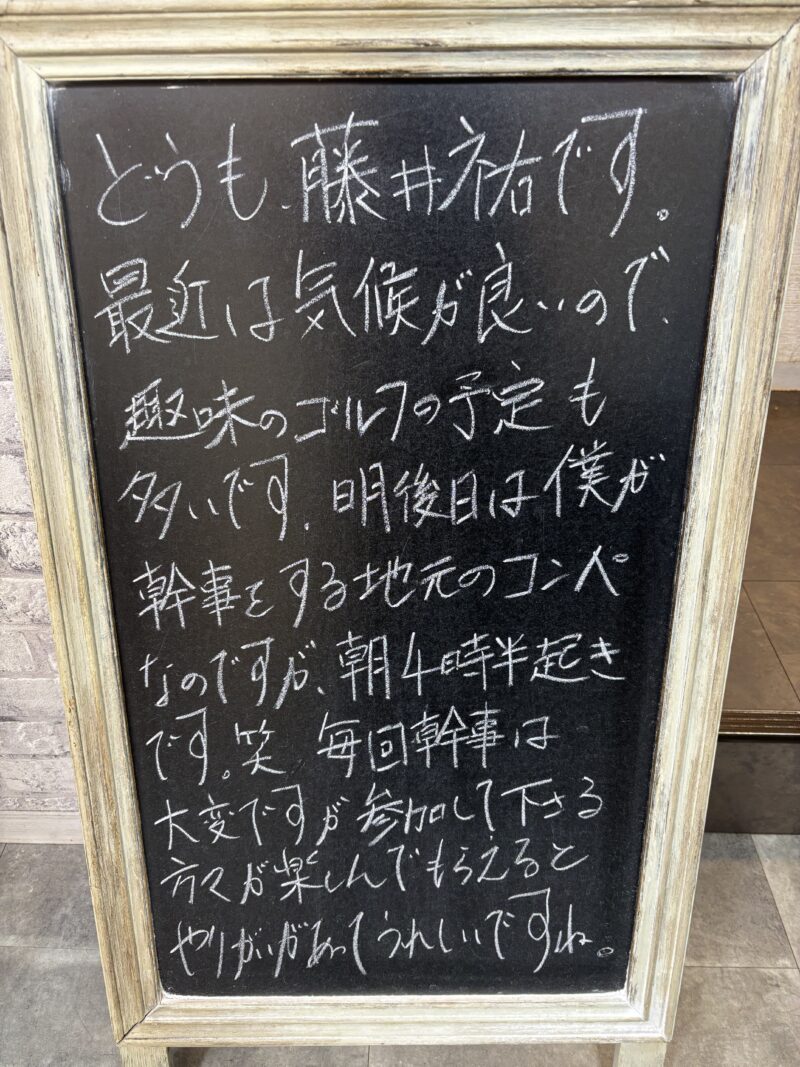 どうも、藤井祐です。
最近は気候が良いので、
趣味のゴルフの予定も
多いです。明後日は僕が
幹事をする地元のコンペ
なのですが、朝4時半起き
です。笑 毎回幹事は
大変ですが参加して下さる
方々が楽しんでもらえると
やりがいがあってうれしいですね。